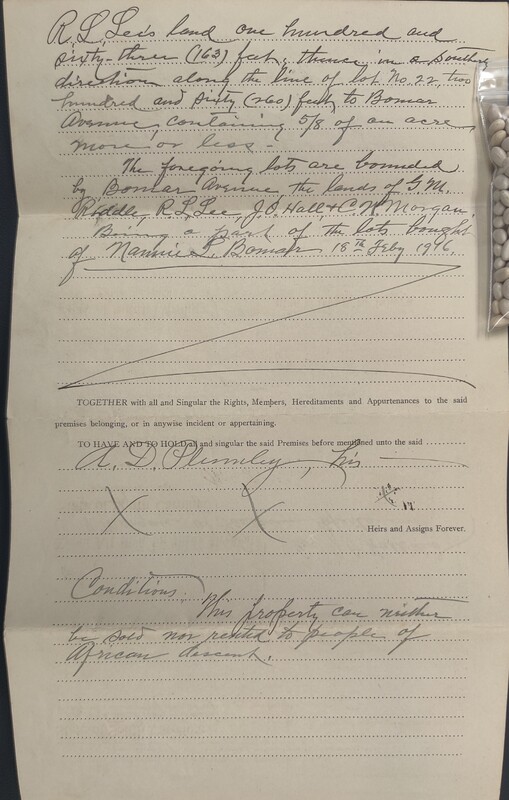 R. L. Lee's land one hundred and
sixty-three (163) feet, thence in a southerly
direction along the line of lot No. 22 two
hundred and sixty (260) feet to Bomar
Avenue, containing 5/8 of an acre,
more or less -
The foregoing lots are bounded
by Bomar Avenue the lands of G. M.
Riddle, R. L. Lee, J. O. Hall & C. N. Morgan.
Being a part of the lots bought
of Nannie L. Bomar 18th Feby
TOGETHER with all and Singular the Rights, Members, Hereditaments and Appurtenances to the said
premises belonging, or in anywise incident or appertaining.
TO HAVE AND TO HOLD all and singular the said Premises before mentioned unto the said
A. D. Plumley, his
Heirs and Assigns Forever.
Conditions.
This property can neither
be sold nor rented to people of
African descent.